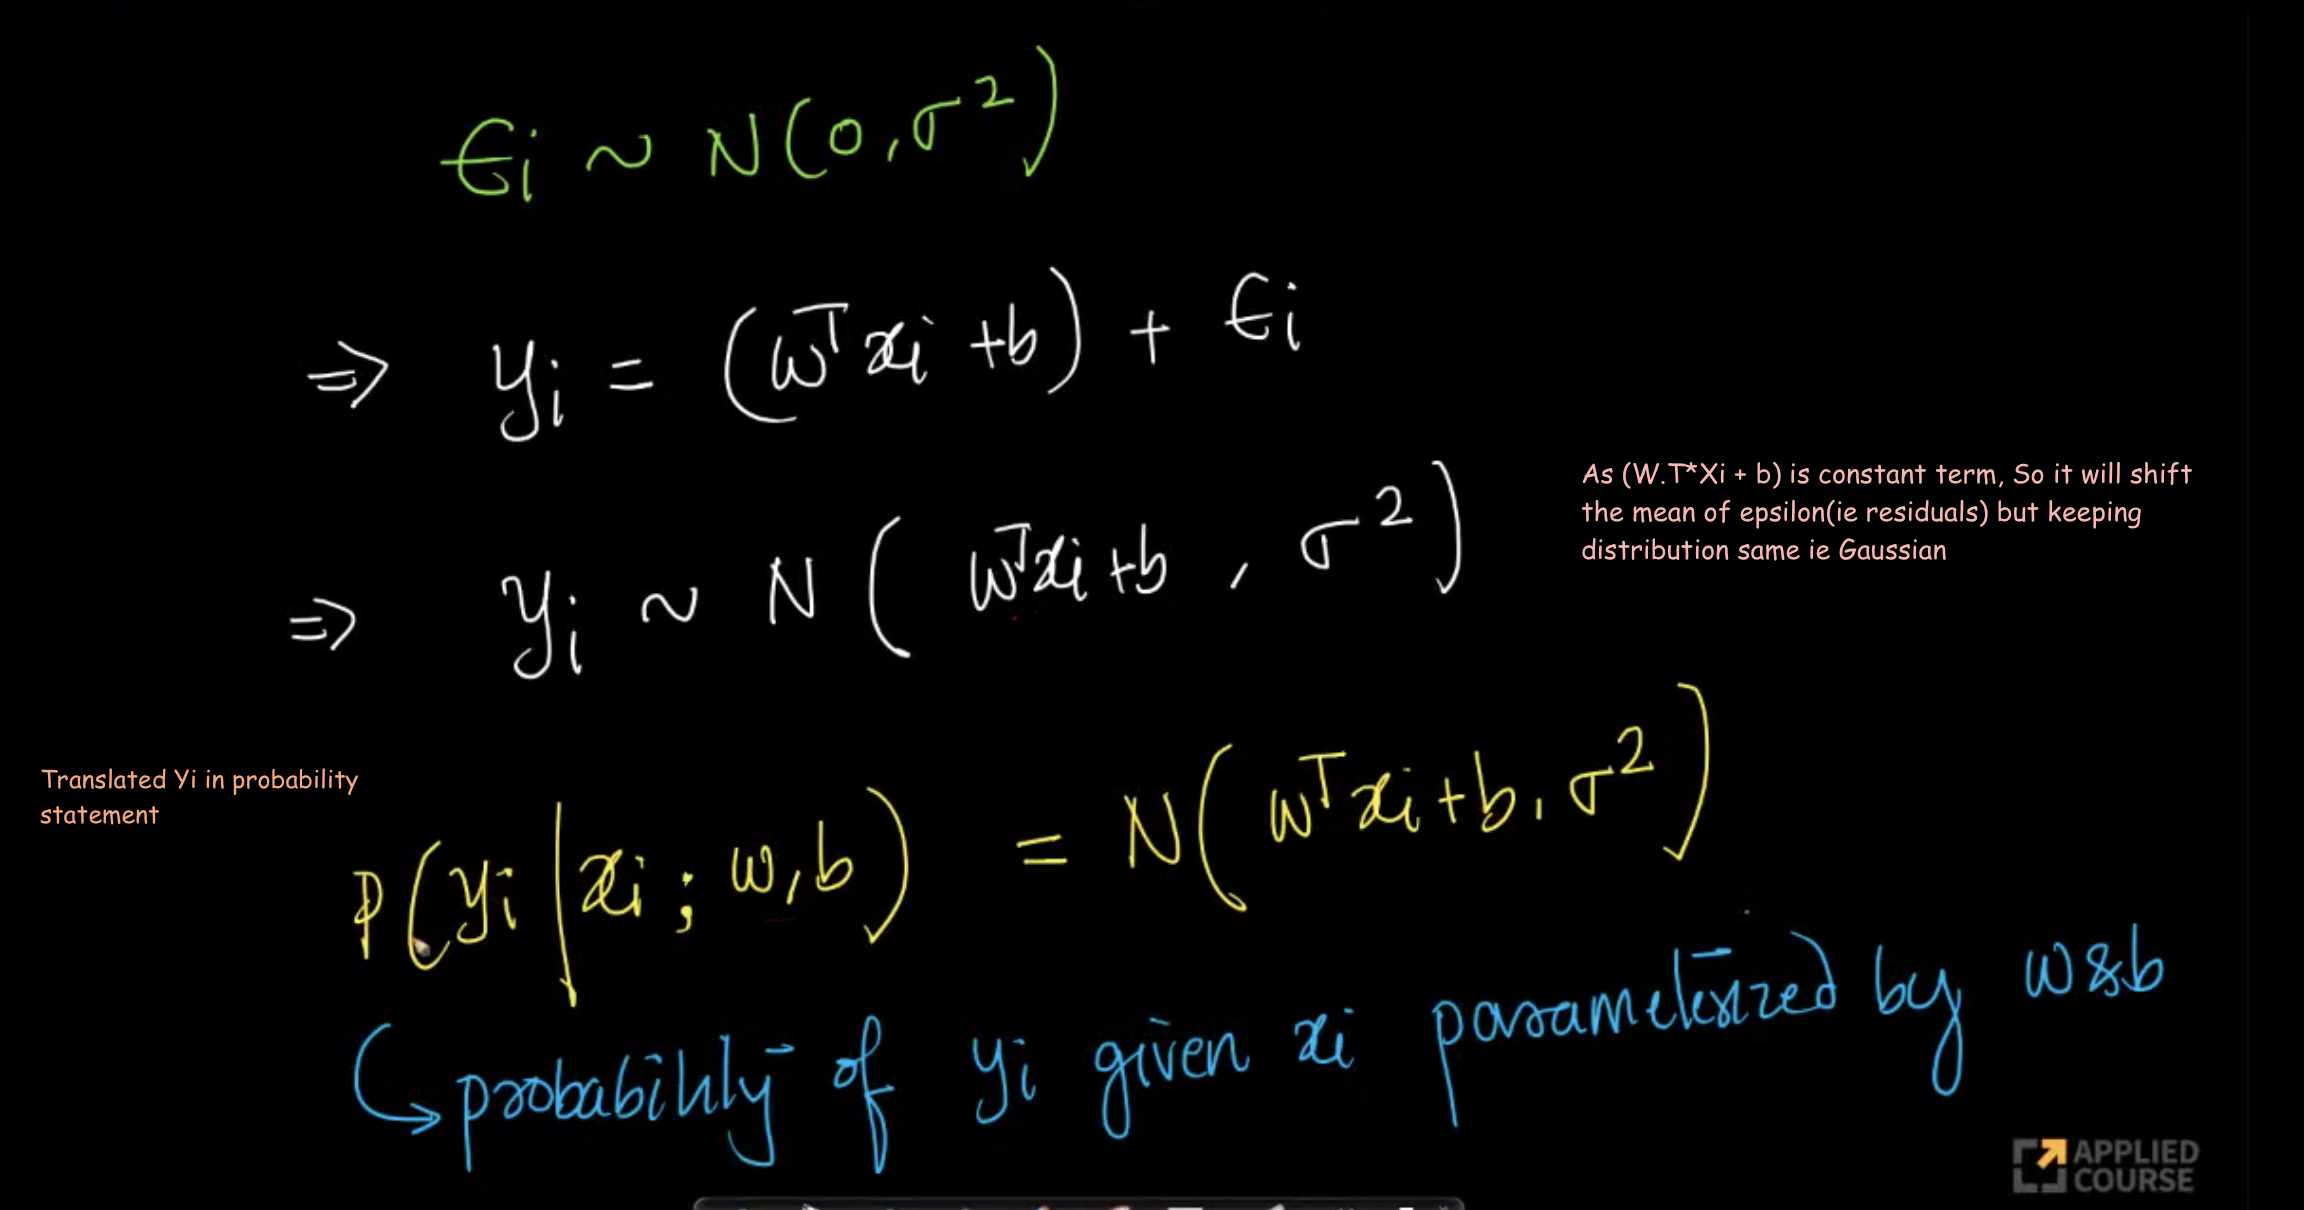 ϵi ~ N(0, σ²)
⇒ yi = (wᵀxi + b) + ϵi
As (W.T*Xi + b) is constant term, So it will shift
the mean of epsilon(ie residuals) but keeping
distribution same ie Gaussian
⇒ yi ~ N(wᵀxi + b, σ²)
Translated Yi in probability
statement
P(yi | xi ; w, b) = N(wᵀxi + b, σ²)
↳ probability of yi given xi parameterized by w & b
APPLIED
COURSE